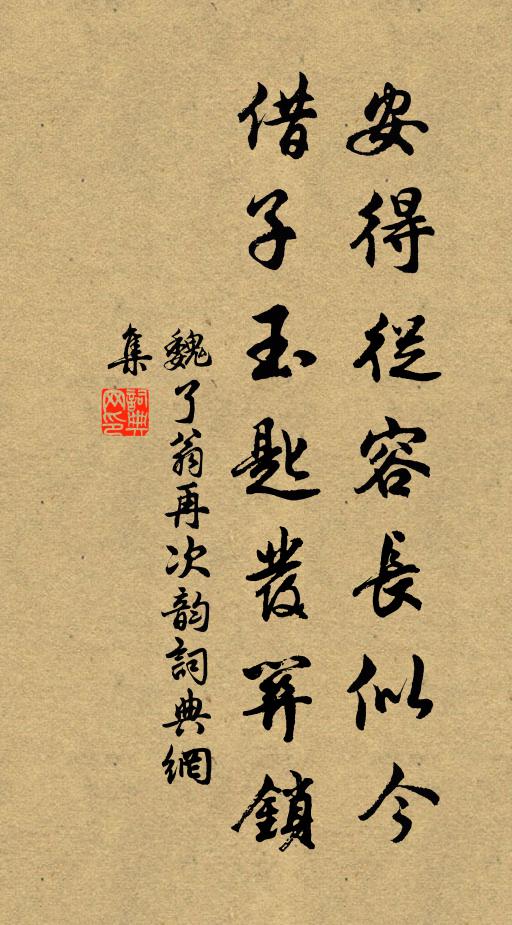 安得從容長似今
借子玉匙發關鎖
魏了翁再次韵詞典網
集
詞典
网印